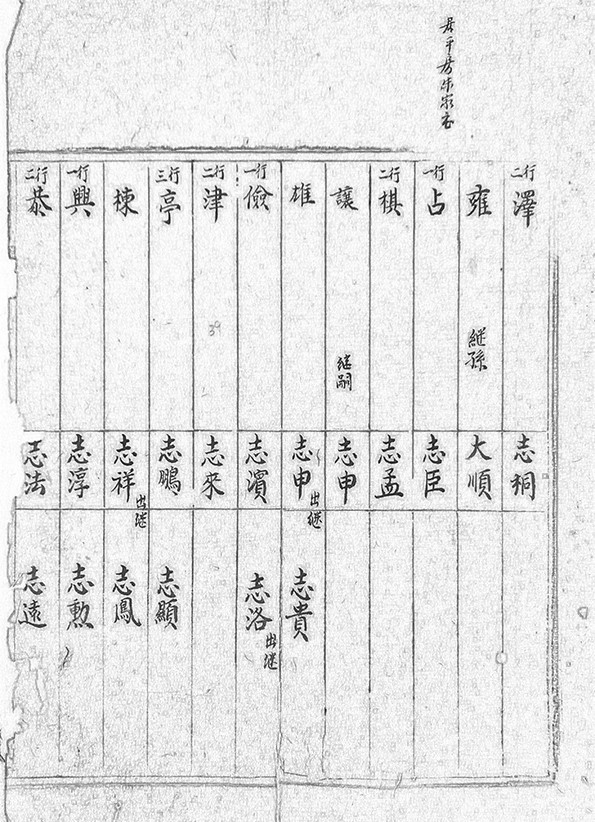 二行 澤 志稝
雍 継孫 大順
一行 占 志臣
二行 棋 志孟
讓 継嗣 志申
雄 志申 出継 志貴
一行 儉 志濱 志洛 出継
二行 津 志來
三行 亭 志鵬 志顯
棟 志祥 出继 志鳳
一行 興 志淳 志勲
二行 恭 志法 志遠